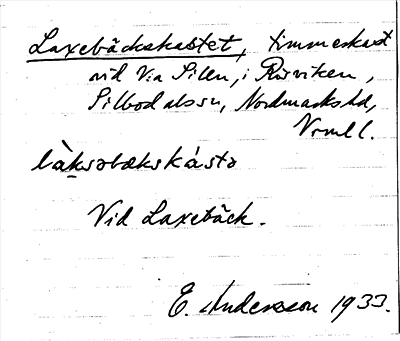 Laxebäckskastet, timmerkast
vid V:a Silen, i Rörviken,
Silbodalssn, Nordmarks hd,
Vrml.
làksəbækskástə
Vid Laxebäck.
E. Andersson 1933.